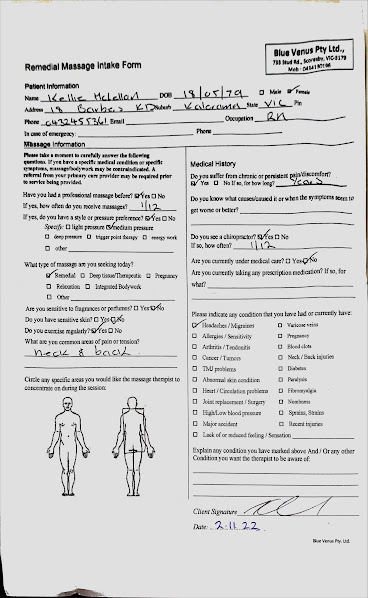 Blue Venus Pty Ltd.,
Remedial Massage Intake Form
Patient Information
Name Kellie McLellan DOB 18/05/79 Male Female
Address 18 Barbers RD Suburb Kalorama State VIC Pin
Phone 0432455361 Email Occupation RN
In case of emergency: Phone
Massage Information
Please take a moment to carefully answer the following
questions. If you have a specific medical condition or specific
symptoms, massage/bodywork may be contraindicated. A
referral from your primary care provider may be required prior
to service being provided.
Have you had a professional massage before? Yes No
If yes, how often do you receive massages? 1/12
If yes, do you have a style or pressure preference? Yes No
Specify: light pressure medium pressure
deep pressure trigger point therapy energy work
other
What type of massage are you seeking today?
Remedial Deep tissue/Therapeutic Pregnancy
Relaxation Integrated Bodywork
Other
Are you sensitive to fragrances or perfumes? Yes No
Do you have sensitive skin? Yes No
Do you exercise regularly? Yes No
What are you common areas of pain or tension?
neck & back
Circle any specific areas you would like the massage therapist to
concentrate on during the session:
Medical History
Do you suffer from chronic or persistent pain/discomfort?
Yes No If so, for how long? Years
Do you know what causes/caused it or when the symptoms seem to
get worse or better?
Do you see a chiropractor? Yes No
If so, how often? 1/12
Are you currently under medical care? Yes No
Are you currently taking any prescription medication? If so, for
what?
Please indicate any condition that you have had or currently have:
Headaches / Migraines Varicose veins
Allergies / Sensitivity Pregnancy
Arthritis / Tendonitis Blood clots
Cancer / Tumors Neck / Back injuries
TMJ problems Diabetes
Abnormal skin condition Paralysis
Heart / Circulation problems Fibromyalgia
Joint replacement / Surgery Numbness
High/Low blood pressure Sprains, Strains
Major accident Recent injuries
Lack of or reduced feeling / Sensation
Explain any condition you have marked above And / Or any other
Condition you want the therapist to be aware of:
Client Signature
Date: 2.11.22
Blue Venus Pty. Ltd.